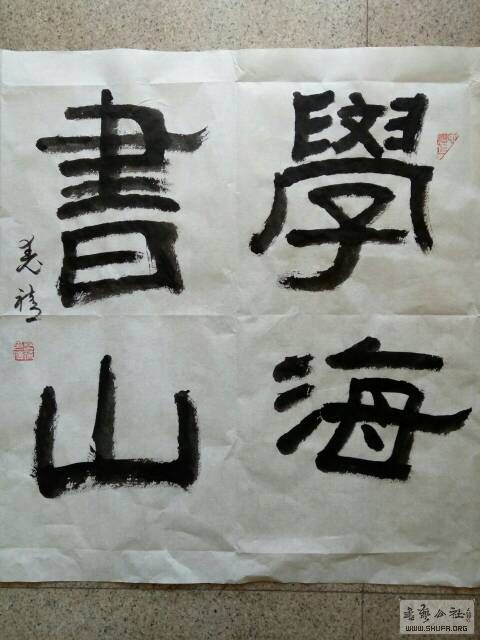 學海
書山
書藝公社
WWW.SHUFA.ORG